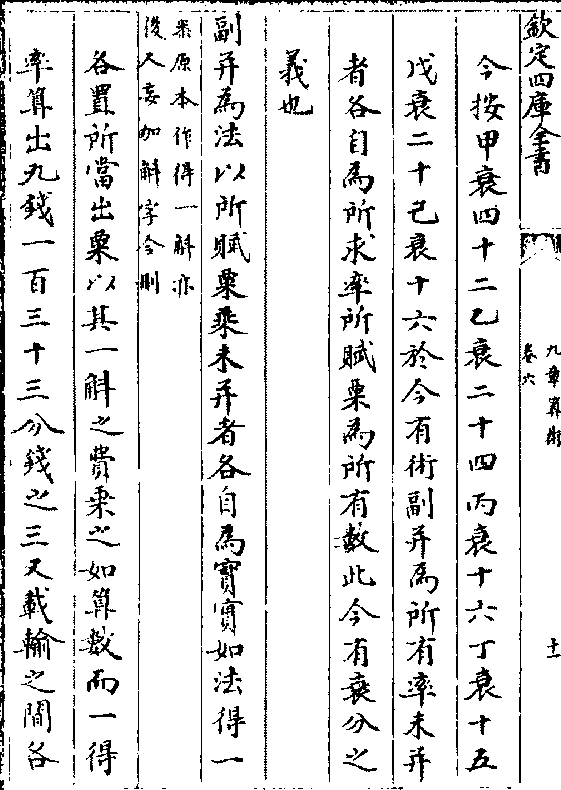 欽定四庫全書
九章算術
卷六
十一
今按甲衰四十二乙衰二十四丙衰十六丁衰十五
戊衰二十己衰十六於今有術副并為所有率未并
者各自為所求率所賦粟為所有數此今有衰分之
義也
副并為法以所賦粟乗未并者各自為實實如法得一
案原本作得一斛亦
後人妄加斛字今刪
各置所當出粟以其一斛之費乗之如算數而一得
率算出九錢一百三十三分錢之三又載輸之間各